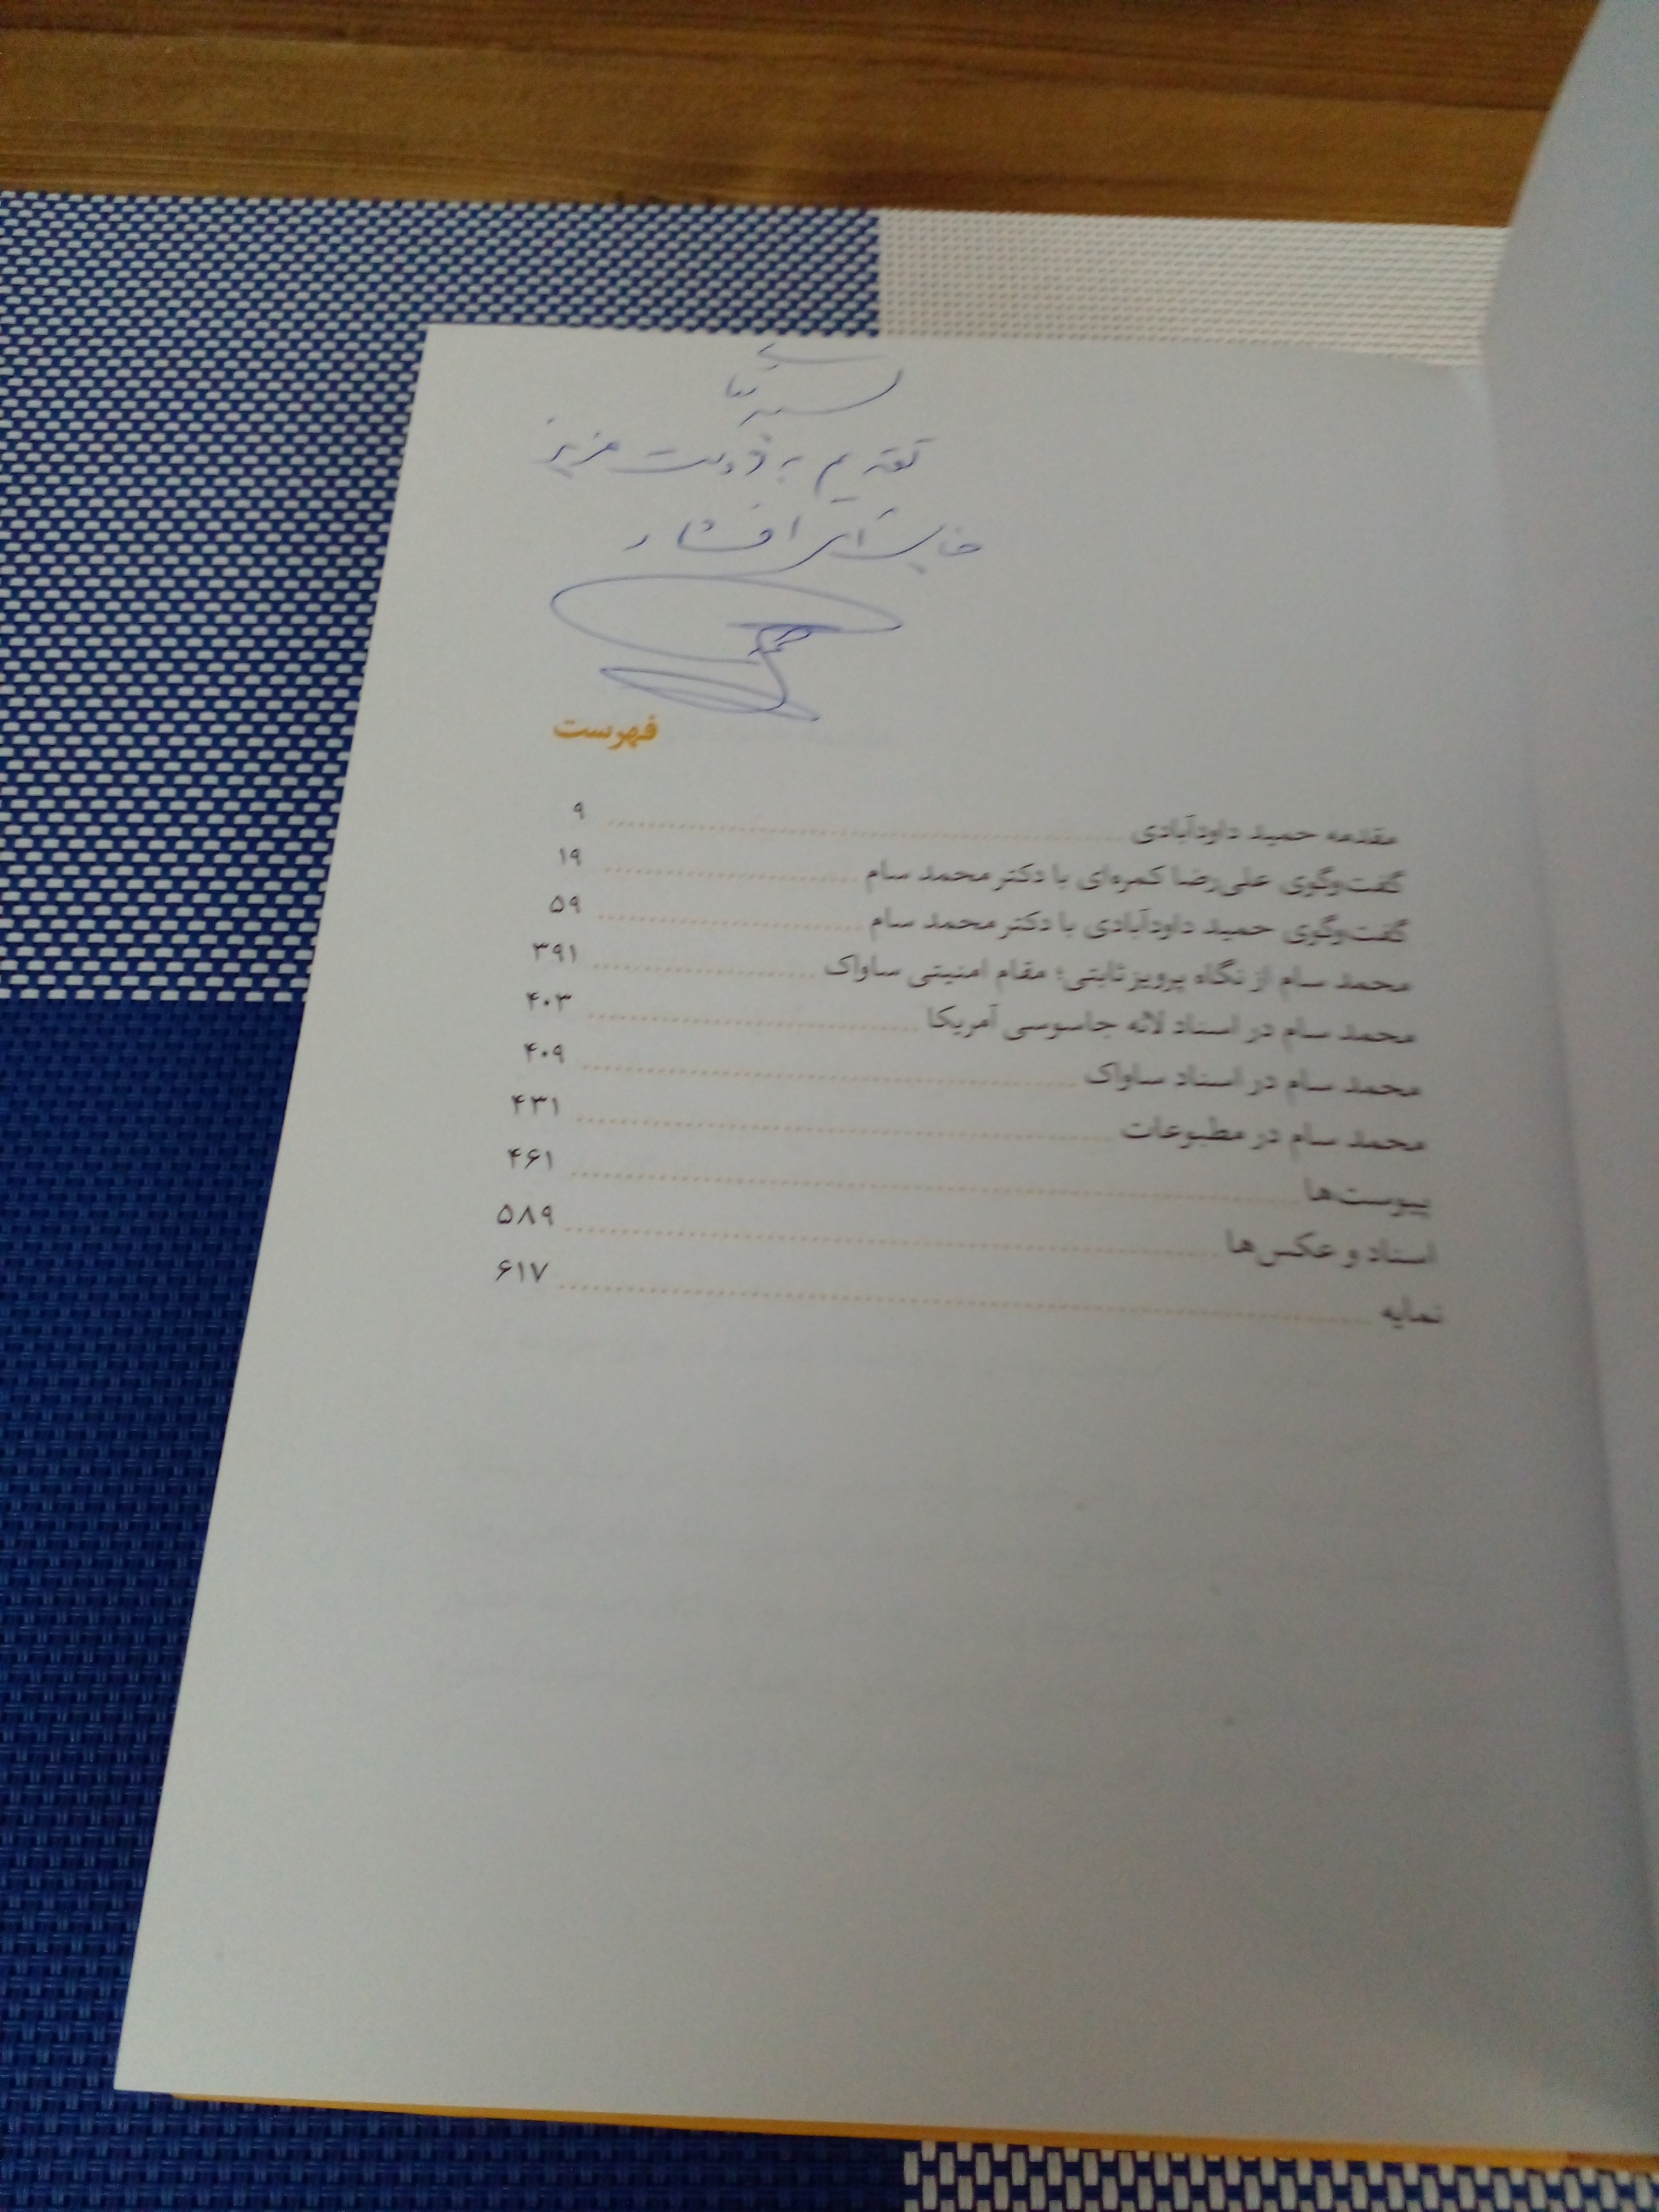 بسمه تعالی
تقدیم به دوست عزیز
افشار
فهرست
مقدمه حمید داودآبادی ۹
گفت‌وگوی علی‌رضا کمره‌ای با دکتر محمد سام ۱۹
گفت‌وگوی حمید داودآبادی با دکتر محمد سام ۵۹
محمد سام از نگاه پرویز ثابتی؛ مقام امنیتی ساواک ۳۹۱
محمد سام در اسناد لانه جاسوسی آمریکا ۴۰۳
محمد سام در اسناد ساواک ۴۰۹
محمد سام در مطبوعات ۴۳۱
پیوست‌ها ۴۶۱
اسناد و عکس‌ها ۵۸۹
نمایه ۶۱۷